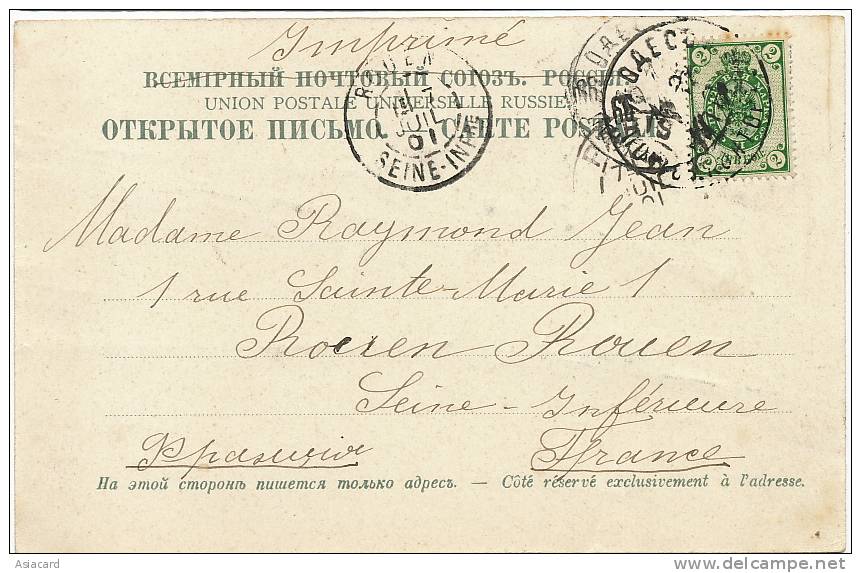 Imprimé
ВСЕМІРНЫЙ ПОЧТОВЫЙ СОЮЗЪ. РОССІЯ
UNION POSTALE UNIVERSELLE RUSSIE
ОТКРЫТОЕ ПИСЬМО. — CARTE POSTALE
ROUEN
17
JUIL
01
SEINE-INFRE
ОДЕССА
17
JUIL
01
2
2
2
2
Madame Raymond Jean
1 rue Sainte-Marie 1
Roeren Rouen
Seine-Inférieure
Франція France
На этой сторонѣ пишется только адресъ. — Côté réservé exclusivement à l'adresse.
Asiacard
delcampe.net